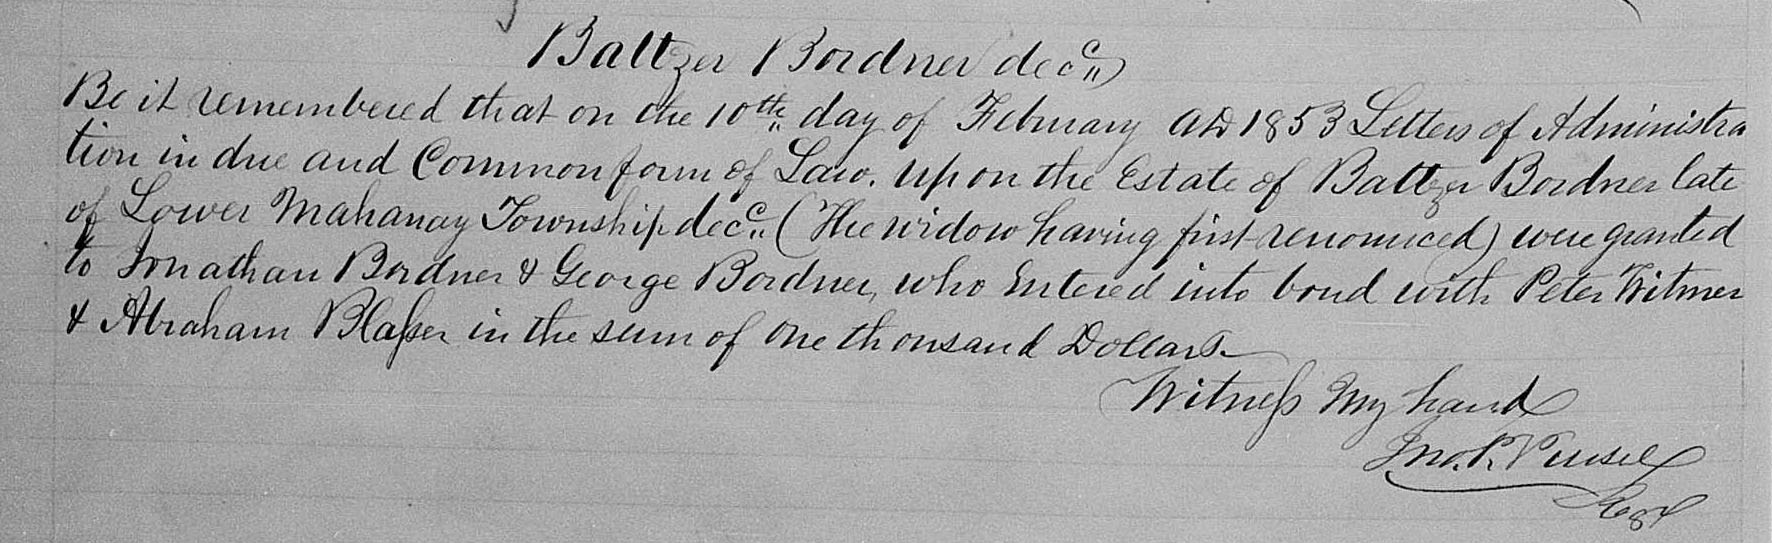 Baltzer Bordner decc
Be it remembered that on the 10th day of February AD 1853 Letters of Administra
tion in due and Common form of Law. upon the Estate of Baltzer Bordner late
of Lower Mahanoy Township decc (The widow having first renounced) were granted
to Jonathan Bordner & George Bordner, who Entered into bond with Peter Witmer
& Abraham Blasser in the sum of One thousand Dollars.
Witness My hand
Jno. P. Pursel
Regr